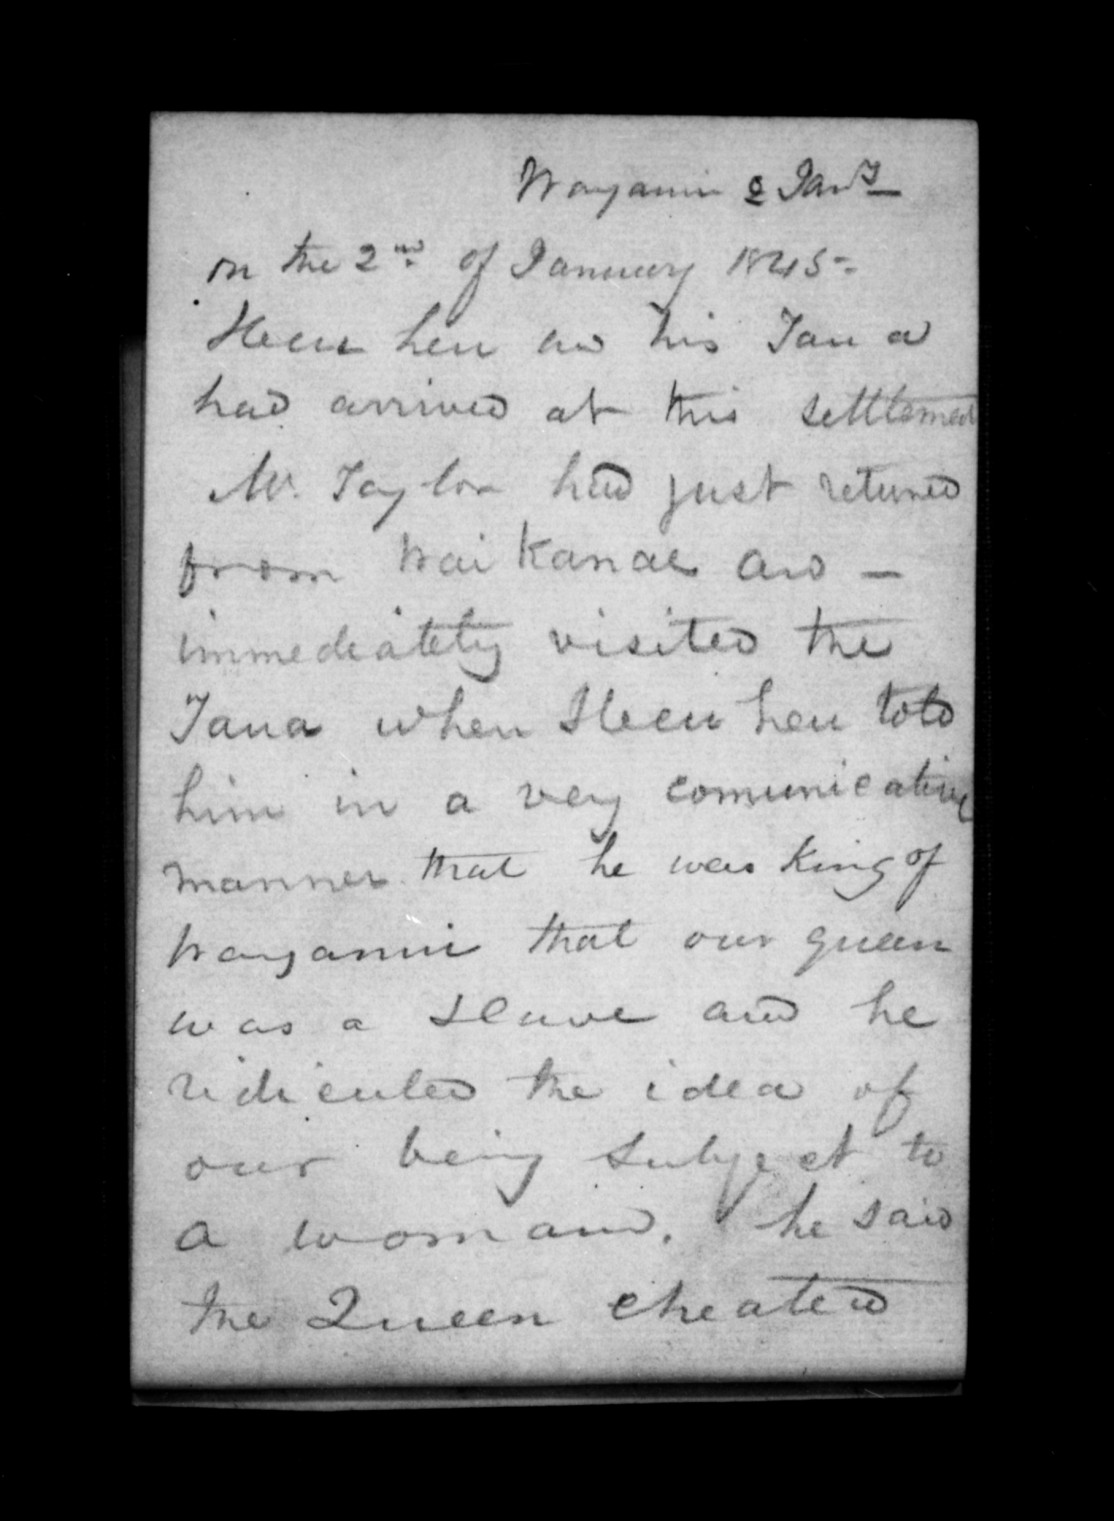 Wanganui 2 Jany
on the 2nd of January 1845-
Heeu heu and his Taua
had arrived at this settlement
Mr. Taylor had just returned
from Wai Kanae and —
immediately visited the
Taua when Heeu heu told
him in a very comunicative
manner that he was King of
Wanganui that our queen
was a slave and he
ridiculed the idea of
our being subject to
a woman. he said
the Queen cheated